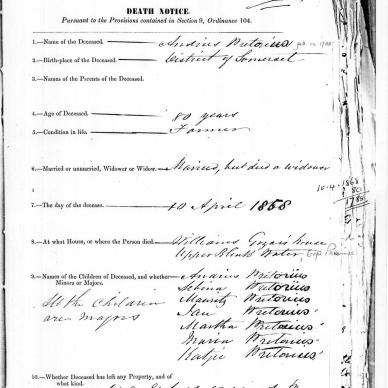 DEATH NOTICE.
Pursuant to the Provisions contained in Section 9, Ordinance 104.
1.—Name of the Deceased. Andries Pretorius
2.—Birth-place of the Deceased. District of Somerset
3.—Names of the Parents of the Deceased.
4.—Age of Deceased. 80 years
5.—Condition in life. Farmer
6.—Married or unmarried, Widower or Widow. Married, but died a widower
10.4.1868
80
1788
7.—The day of the deceased. 10 April 1868
8.—At what House, or where the Person died. Williams house
Upper Blinkwater
9.—Names of the Children of Deceased, and whether
Minors or Majors.
Andries Pretorius
Pretorius
Pretorius
Jan Pretorius
Martha Pretorius
Maria Pretorius
Pretorius
All the Children
are majors
10.—Whether Deceased has left any Property, and of
what kind.